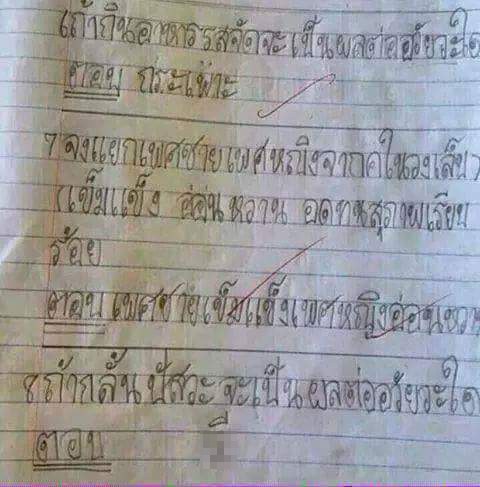 6ถ้ากินอาหารรสจัดจะเป็นผลต่ออวัยวะใด
ตอบ กระเพาะ
7 จงแยกเพศชายเพศหญิงจากคำในวงเล็บ
(เข้มแข็ง อ่อนหวาน อดทนสุภาพเรียบ
ร้อย
ตอบ เพศชายเข้มแข็งเพศหญิงอ่อนหวาน
8 ถ้ากลั้นปัสวะจะเป็นผลต่ออวัยวะใด
ตอบ